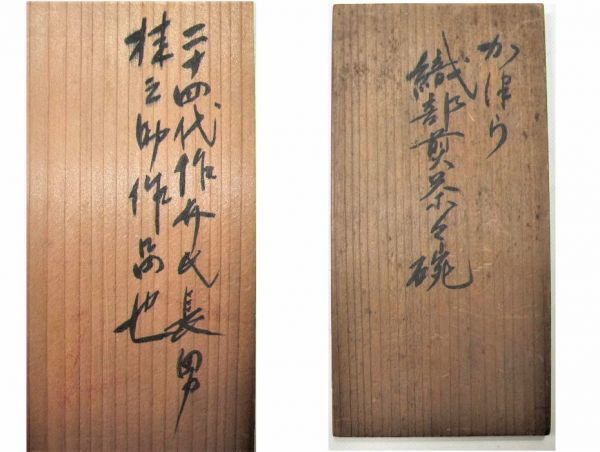 二十四代作弁氏長男
桂之助作品也
かは〻り
織部煎茶々碗